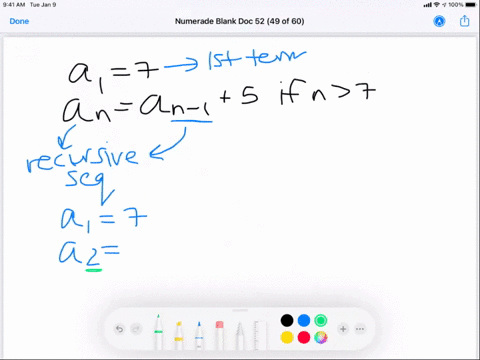 9:41 AM Tue Jan 9
100%
Done
Numerade Blank Doc 52 (49 of 60)
a₁ = 7 → 1st term
aₙ = aₙ₋₁ + 5 if n > 7
recursive
seq
a₁ = 7
a₂ =